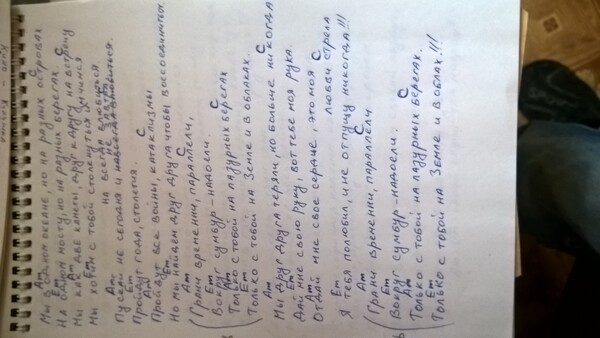 Am C
Мы в одном океане, но на разных островах
Em C
На одном мосту, но на разных берегах
Am
Мы как две кометы, друг к другу на встречу мчимся
Em
Мы с тобой столкнуться и на всегда влюбиться
Am
Пускай не сегодня и не завтра
Em C
Пройдут года, столетия.
Am
Пройдут все войны, катаклизмы
Em C
Но мы найдем друг друга чтобы воссоединиться.
Am C
Грани временни, параллели,
Em
Вокруг сумбур - надоели.
Am C
Только с тобой на лазурных берегах
Em
Только с тобой на Земле и в облаках.
Am C
Мы друг друга теряли, но больше никогда
Em
Дай мне свою руку, вот тебе моя рука.
Am C
Отдай мне свое сердце, это моя любви стрела
Em
Я тебя полюбил, и не отпущу никогда!!!
Am C
Грани временни, параллели
Em
Вокруг сумбур - надоели.
Am C
Только с тобой на лазурных берегах
Em
Только с тобой на Земле и в облах!!!